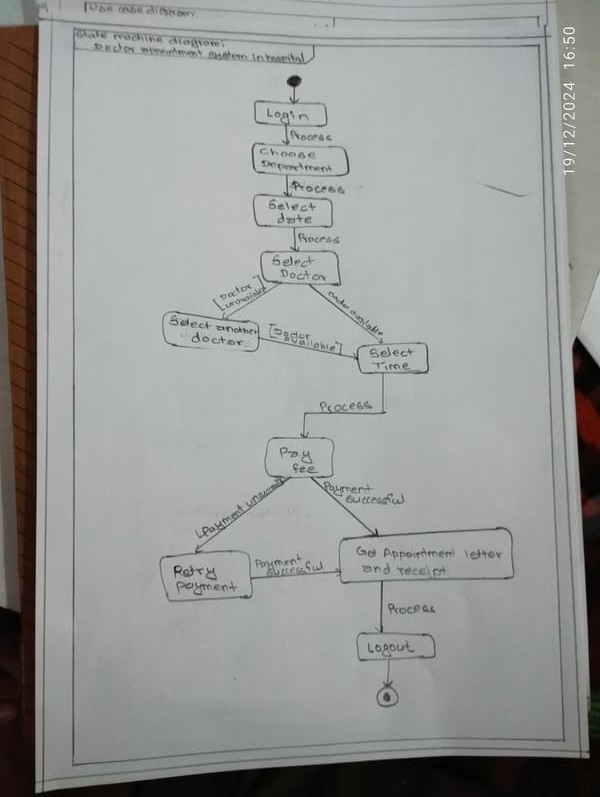 Use case diagram.
State machine diagram:
Doctor appointment system in hospital
Login
Process
Choose
Department
Process
Select
date
Process
Select
Doctor
[Doctor
unavailable]
Doctor available
Select another
doctor
[Doctor
available]
Select
Time
Process
Pay
fee
[Payment
Payment
successful
Retry
Payment
Payment
successful
Get Appointment letter
and receipt
Process
Logout
19/12/2024 16:50